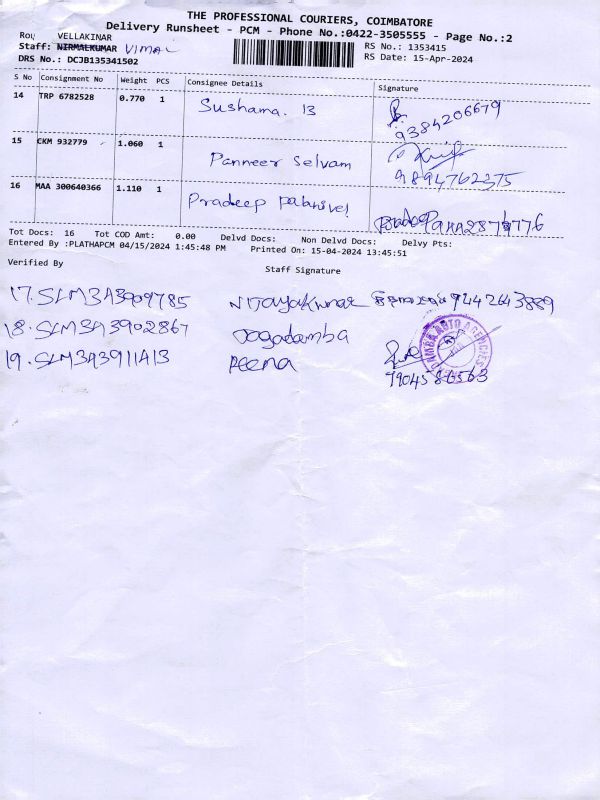 THE PROFESSIONAL COURIERS, COIMBATORE
Delivery Runsheet - PCM - Phone No.:0422-3505555 - Page No.:2
VELLAKINAR
Staff: NIRMALKUMAR VIMAL
RS No.: 1353415
DRS No.: DCJB135341502
RS Date: 15-Apr-2024
S No Consignment No Weight PCS Consignee Details Signature
14 TRP 6782528 0.770 1 Sushama. B
9384206679
15 CKM 932779 1.060 1 Panneer Selvam
9894762375
16 MAA 300640366 1.110 1 Pradeep Palanivel
Pradeep
Tot Docs: 16 Tot COD Amt: 0.00 Delvd Docs: Non Delvd Docs: Delvy Pts:
Entered By :PLATHAPCM 04/15/2024 1:45:48 PM Printed On: 15-04-2024 13:45:51
Verified By
Staff Signature
17. SLM3A3909785 9442643889
18. SLM3A3902867 Jagadamba
19. SLM3A3911413 Reena
7904586563